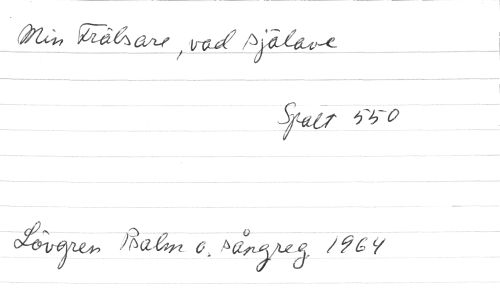 Min Frälsare, vad själave
Spalt 550
Lövgren Psalm o. sångreg. 1964